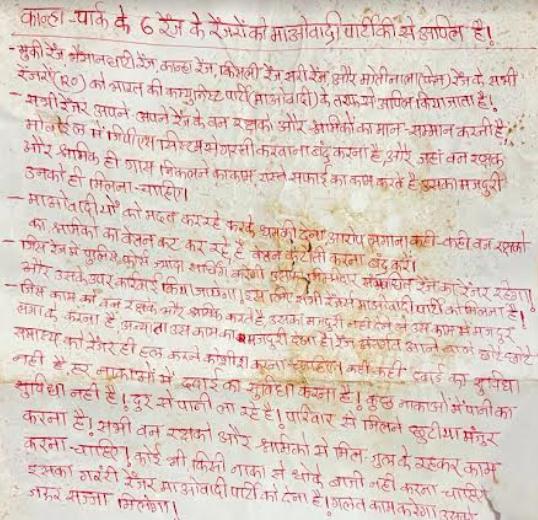 कान्हा-पार्क के 6 रेंज के रेंजरों को माओवादी पार्टी की से अपिल है!
- मुकी रेंज, भैसानघाट रेंज, कान्हा रेंज, किसली रेंज सरी रेंज, और मोतीनाला (फेन) रेंज के सभी
रेंजरो (RO) को भारत की कम्युनिस्ट पार्टी (माओवादी) के तरफ से अपिल किया जाता है!
- सभी रेंजर अपने-अपने रेंज के वन रक्षको और श्रमिकों का मान-सम्मान करनी है,
मोबाईल में जिपीएस सिस्टम से गस्ती करवाना बंद करना है, और जहां वन रक्षक
और श्रमिक ही गास निकलने का काम, रास्ते सफाई का काम करते है उसका मजदुरी
उनको ही मिलना-चाहिए।
- माओवादीयों को मदत कर रहे करके धमकी देना, आरोप लगाना कही-कही वन रक्षको
का श्रमिको का वेतन कट कर रहे है, वेतन कटौती करना बंद करो।
- जिस रेंज में पुलिस फोर्स ज्यादा सर्चिंग करेगा उसका जिम्मेदार संबंधित रेंज का रेंजर रहेगा!
और उसके उपर कारवाई किया जायेगा! इस लिए सभी रेंजर माओवादी पार्टी को मिलना है!
- जिस काम को वन रक्षक और श्रमिक करते है, उसका मजदुरी नही देने से उस काम में मजदुर
लगा के करना है, अन्यथा उस काम का मजदुरी देना है। रेंज अंतर्गत आने वाले छोटे-छोटे
समास्या को रेंजर ही हल करने कोशीश करना चाहिए। कही कही दवाई का सुविधा
नही है हर नाकाओं में दवाई का सुविधा करना है! कुछ नाकाओं में पानी का
सुविधा नही है! दुर से पानी ला रहे है! परिवार से मिलने छुटीया मंजुर
करना है! सभी वन रक्षको और श्रमिको से मिल जुल के रहकर काम
करना-चाहिए! कोई भी किसी नाका से धोके बाजी नही करना चाहिए
इसका गारंटी रेंजर माओवादी पार्टी को देना है! गलत काम करेगा उसको
जरूर सज्जा मिलेगा!